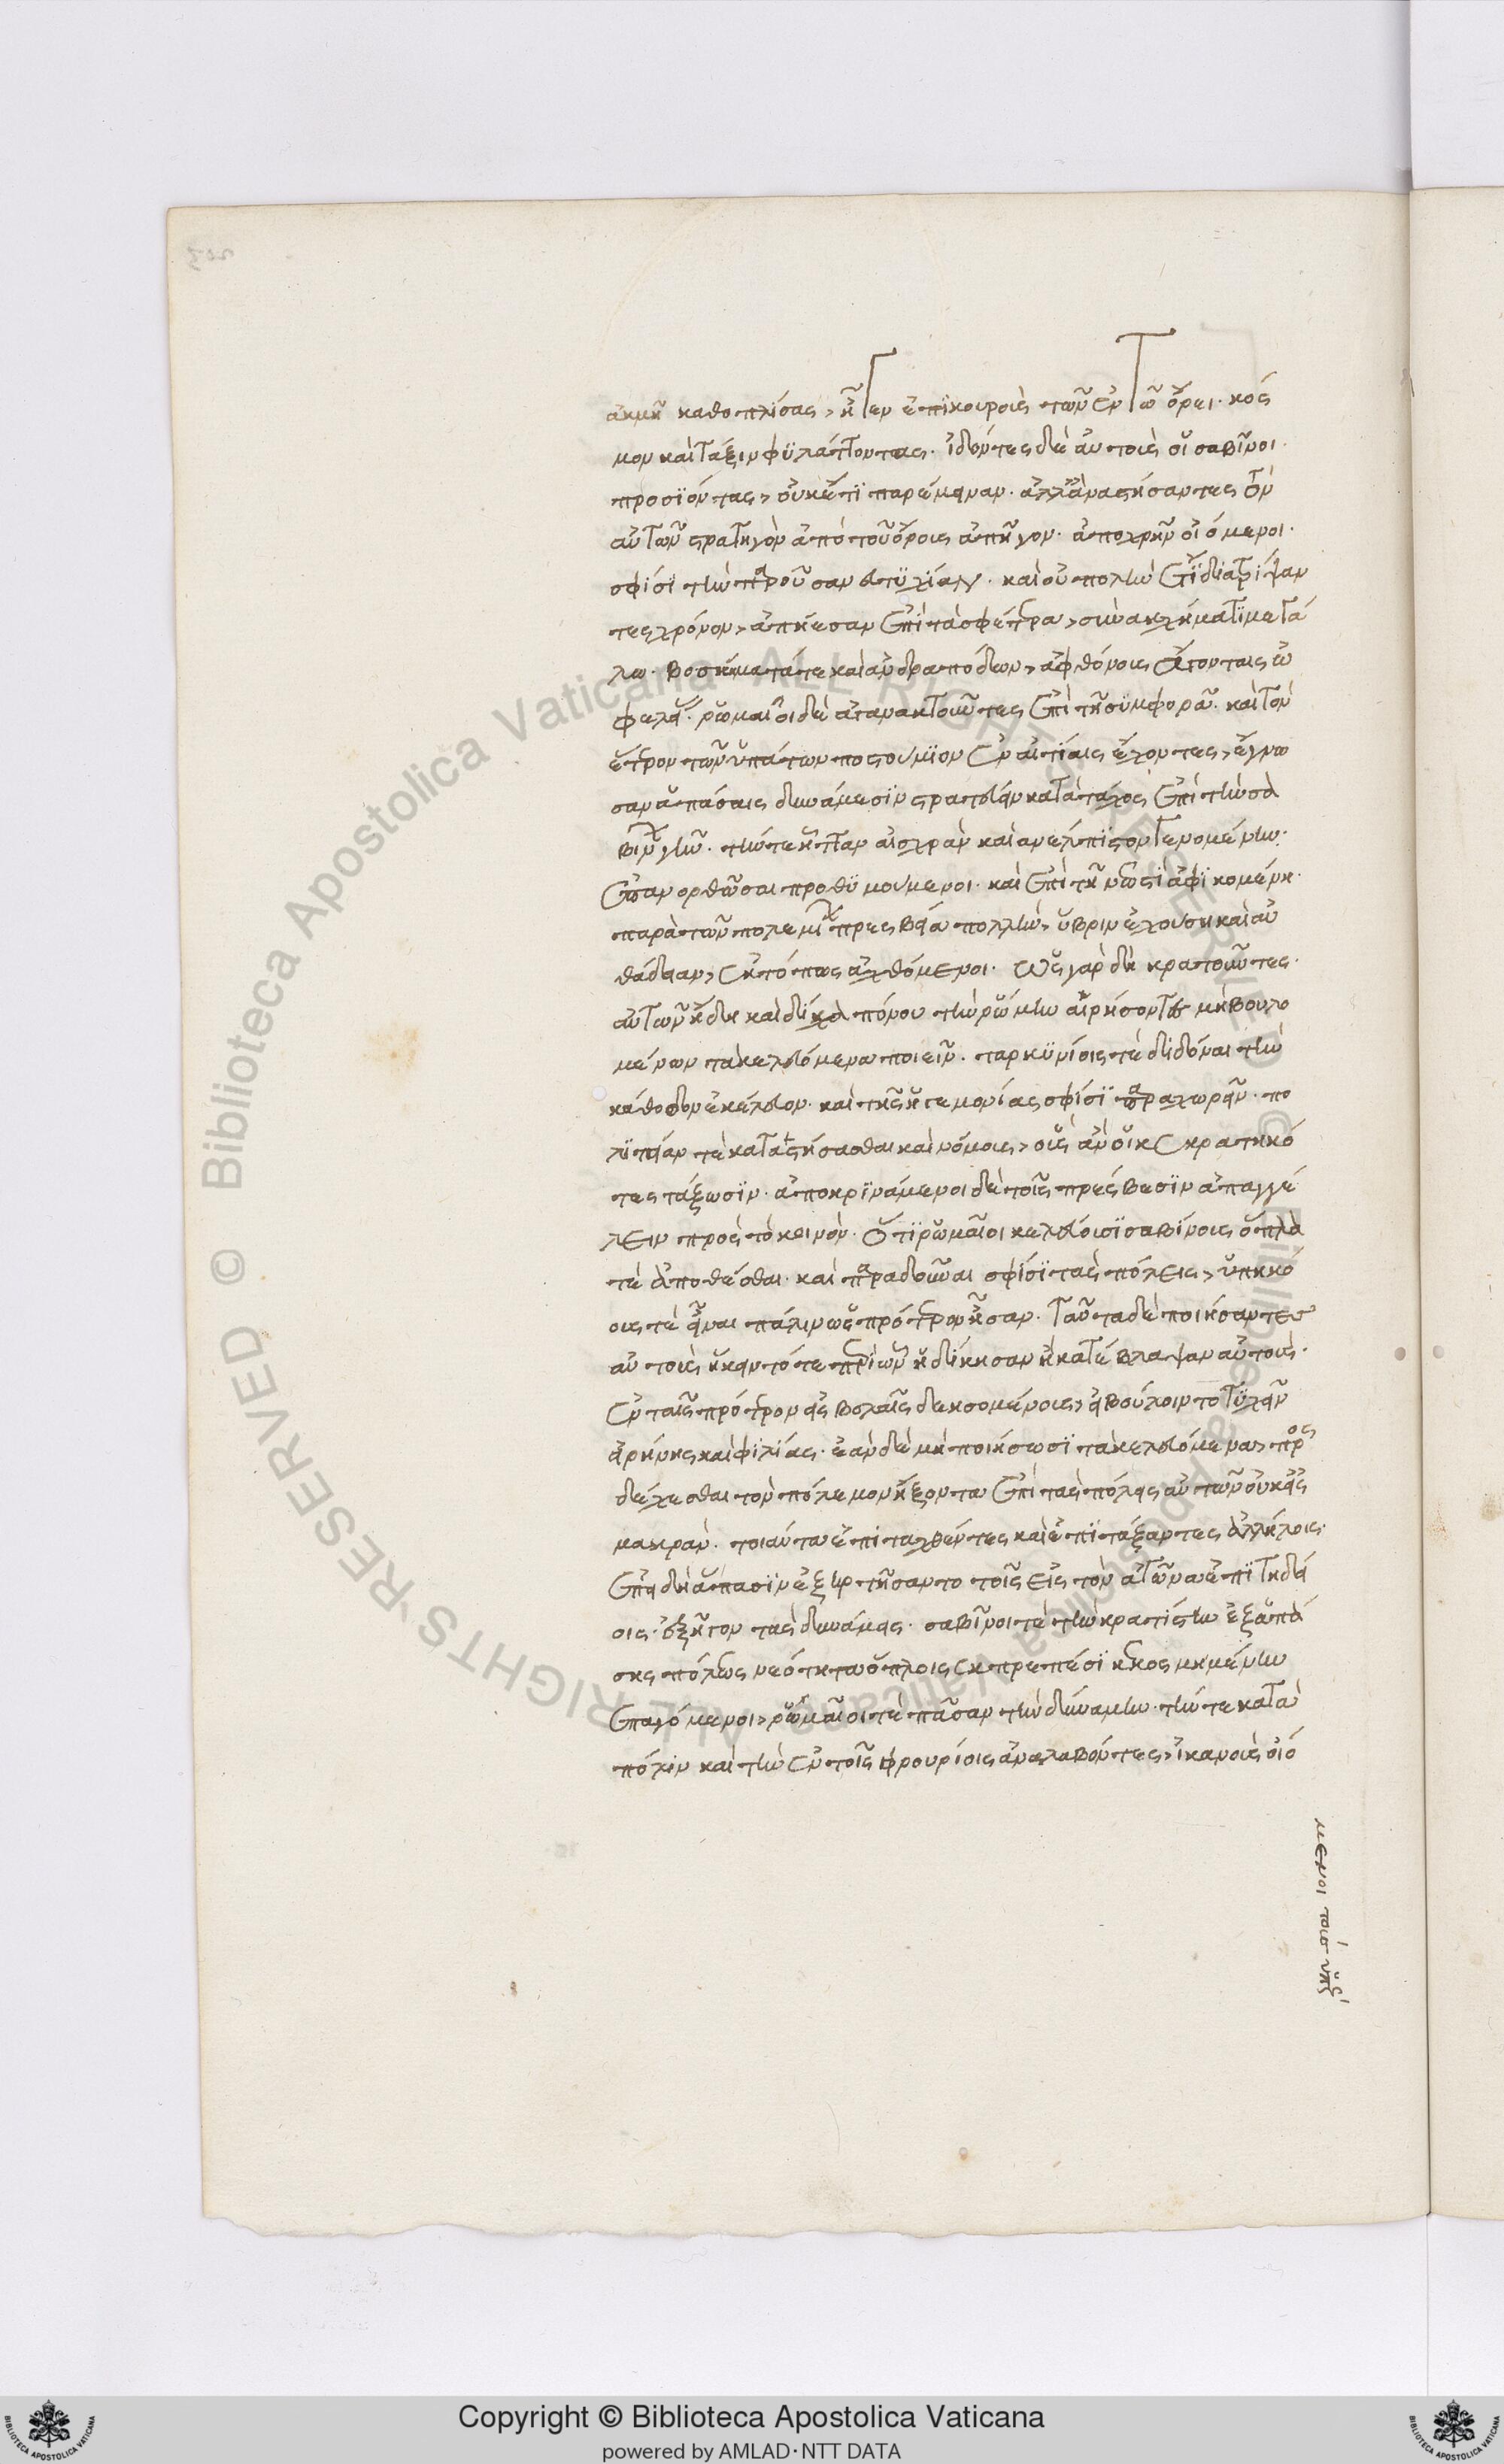 ἀκμῆ καθοπλίσας, ἧγεν ἐπικούρους τῶν ἐν τῶ ὄρει. κόσ
μον καὶ τάξιν φυλάττοντας. ἰδόντες δὲ αὐτοὺς οἱ σαβῖνοι
προσϊόντας, οὐκέτι παρέμειναν. ἀλλ' ἀναστήσαντες τὸν
αὐτῶν στρατηγὸν ἀπὸ τοῦ ὄρους ἀπῆγον. ἀποχρῆν οἰόμενοι
σφίσι τὴν παροῦσαν εὐτυχίαν. καὶ οὐ πολὺν ἔτι διατρίψαν
τες χρόνον, ἀπήεσαν ἐπὶ τὰ σφέτερα, σὺν αὐχήματι μεγά
λω. βοσκήματά τε καὶ ἀνδραπόδων, ἀφθόνους ἄγοντας ὠ
φελείας. ῥωμαῖοι δὲ ἀγανακτοῦντες ἐπὶ τῆ συμφορᾶ. καὶ τὸν
ἕτερον τῶν ὑπάτων ποστούμιον ἐν αἰτίαις ἔχοντες, ἔγνω
σαν ἁπάσαις δυνάμεσιν στρατεύειν κατὰ τάχος ἐπὶ τὴν σα
βίνων γῆν. τήν τε ἧτταν αἰσχρὰν καὶ ἀνέλπιστον γενομένην
ἐπανορθῶσαι προθυμούμενοι. καὶ ἐπὶ τῆ νεωστὶ ἀφικομένη
παρὰ τῶν πολεμίων πρεσβεία πολλὴν, ὕβριν ἐχούση καὶ αὐ
θάδειαν, ἐκτόπως ἀχθόμενοι. ὡς γὰρ δὴ κρατοῦντες
αὐτῶν ἤδη καὶ δίχα πόνου τὴν ῥώμην αἱρήσοντες μὴ βουλο
μένων τὰ κελευόμενα ποιεῖν. ταρκυνίοις τὲ διδόναι τὴν
κάθοδον ἐκέλευον. καὶ τῆς ἡγεμονίας σφίσι παραχωρεῖν. πο
λιτείαν τὲ καταστήσασθαι καὶ νόμους, οὓς ἂν οἱ κεκρατηκό
τες τάξωσιν. ἀποκρινάμενοι δὲ τοῖς πρέσβεσιν ἀπαγγέ
λειν πρὸς τὸ κοινὸν. ὅτι ῥωμαῖοι κελεύουσι σαβίνους ὅπλα
τὲ ἀποθέσθαι. καὶ παραδοῦναι σφίσι τὰς πόλεις, ὑπηκό
ους τὲ εἶναι πάλιν ὡς πρότερον ἦσαν. ταῦτα δὲ ποιήσαντες
αὐτοὺς ἥκειν τότε περὶ ὧν ἠδίκησαν ἢ κατέβλαψαν αὐτοὺς
ἐν ταῖς πρότερον εἰσβολαῖς δεησομένους, εἰ βούλοιντο τυχεῖν
εἰρήνης καὶ φιλίας. ἐὰν δὲ μὴ ποιήσωσι τὰ κελευόμενα, προσ
δέχεσθαι τὸν πόλεμον ἥξοντα ἐπὶ τὰς πόλεις αὐτῶν οὐκ εἰς
μακρὰν. τοιαῦτα ἐπιταχθέντες καὶ ἐπιτάξαντες ἀλλήλοις
ἐπειδὴ ἅπασιν ἐξηρτήσαντο τοῖς εἰς τὸν ἀγῶνα ἐπιτηδεί
οις. ἐξῆγον τὰς δυνάμεις. σαβῖνοι τὲ τὴν κρατίστην ἐξ ἁπά
σης πόλεως νεότητα ὅπλοις ἐκπρεπέσι κεκοσμημένην
ἐπαγόμενοι, ῥωμαῖοι τὲ πᾶσαν τὴν δύναμιν. τήν τε κατὰ
πόλιν καὶ τὴν ἐν τοῖς φρουρίοις ἀναλαβόντες, ἱκανοὺς οἰό
μενοι τοὺς ὑπὲρ
Copyright © Biblioteca Apostolica Vaticana
powered by AMLAD·NTT DATA